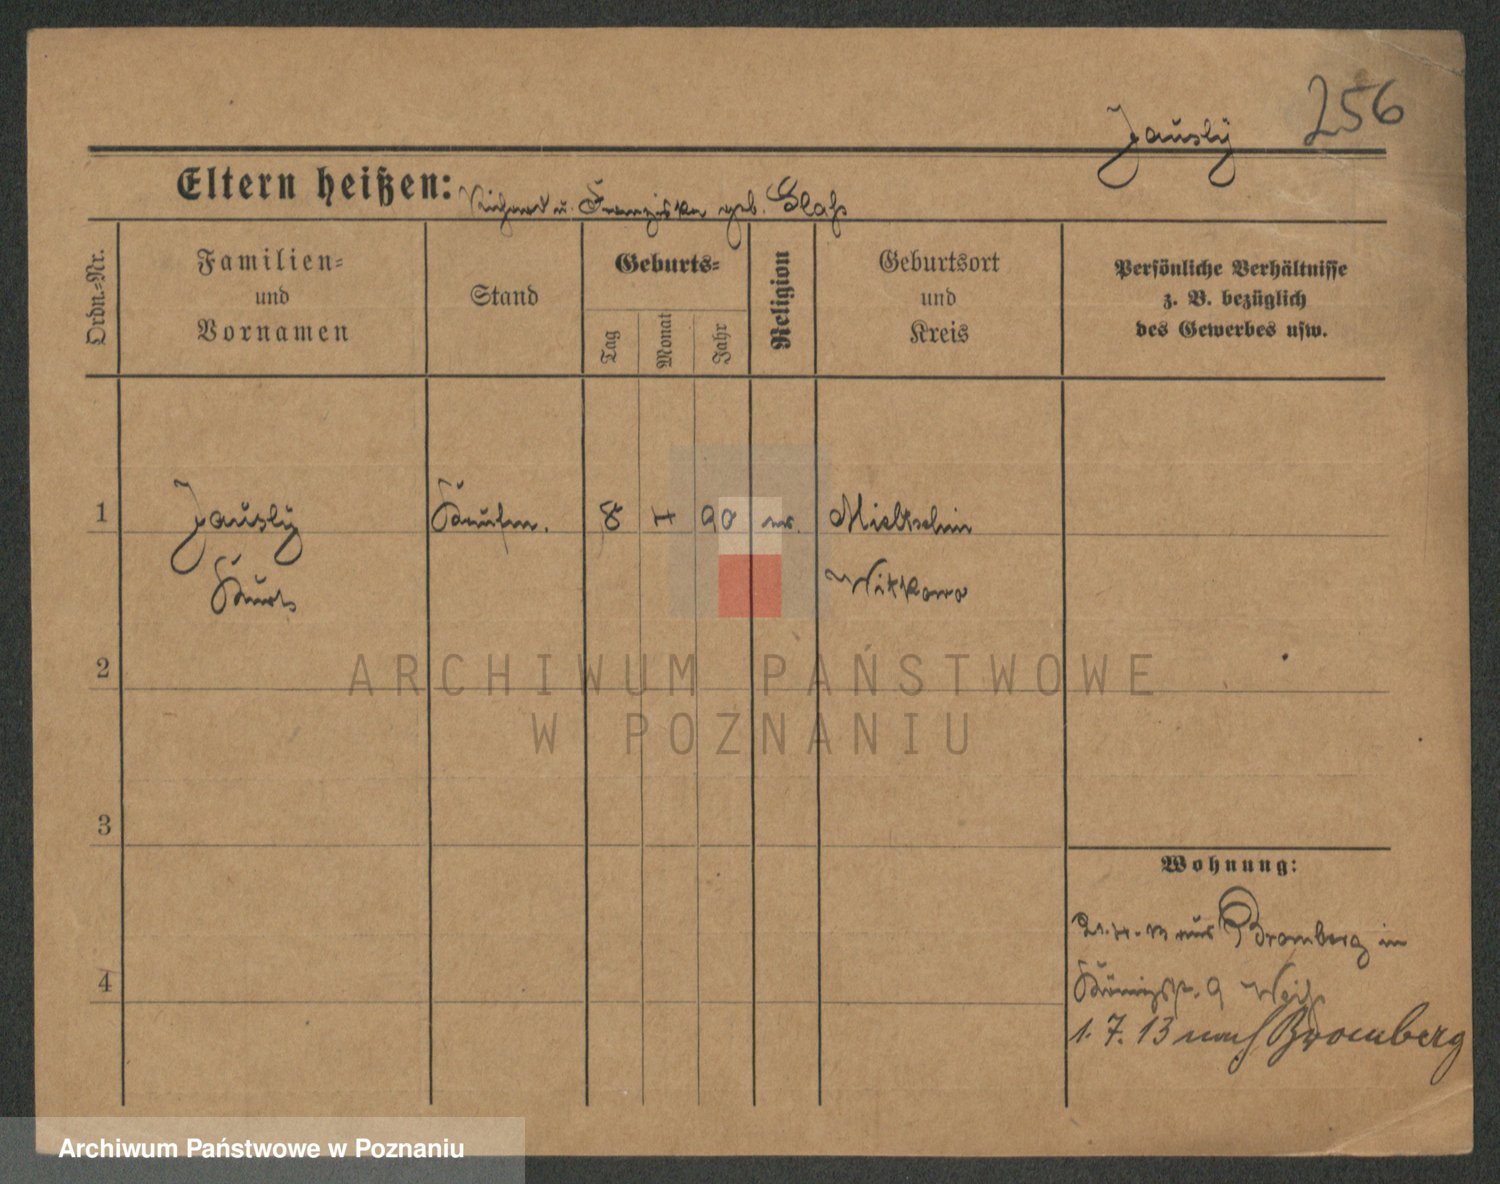 256
Jausly
Eltern heißen: Richard u. Franziska geb. Glaß
Ordn.-Nr.
Familien-
und
Vornamen
Stand
Geburts-
Tag
Monat
Jahr
Religion
Geburtsort
und
Kreis
Persönliche Verhältnisse
z. B. bezüglich
des Gewerbes usw.
1 Jausly Kaufm. 8 4 90 Mieltschin
Kurt Witkowo
ARCHIWUM PAŃSTWOWE
W POZNANIU
2
3
Wohnung:
aus Bromberg in
4
Königstr. 9 Weiß
1. 7. 13 nach Bromberg
Archiwum Państwowe w Poznaniu